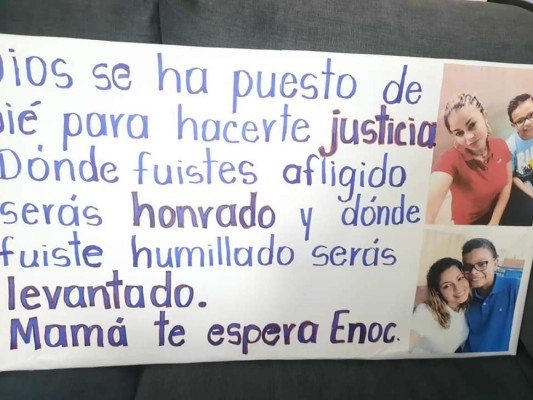 Dios se ha puesto de
pié para hacerte justicia
Dónde fuistes afligido
serás honrado y dónde
fuiste humillado serás
levantado.
Mamá te espera Enoc.